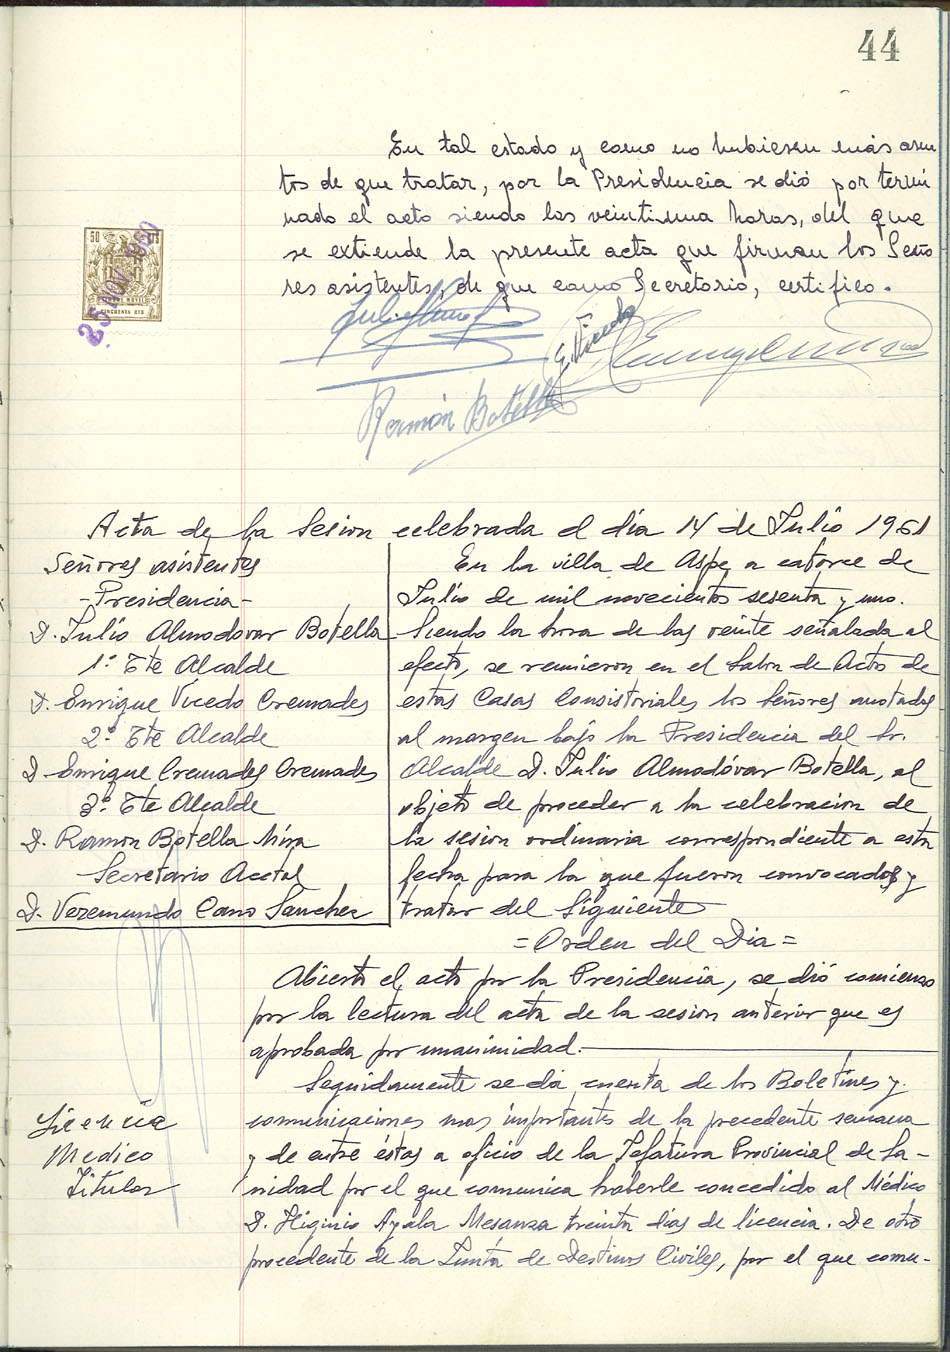 44
En tal estado y como no hubiesen más asun
tos de que tratar, por la Presidencia se dió por termi
nado el acto siendo las veintiuna horas, del que
se extiende la presente acta que firman los Seño
res asistentes, de que como Secretario, certifico.
50 CTS
25 NOV. 1960
CINCUENTA CTS
E. Vicedo
Ramón Botella
Acta de la Sesion celebrada el día 14 de Julio 1961
Señores asistentes
-Presidencia-
D. Julio Almodovar Botella
1º Tte Alcalde
D. Enrique Vicedo Cremades
2º Tte Alcalde
D. Enrique Cremades Cremades
3º Tte Alcalde
D. Ramon Botella Mira
Secretario Acctal
D. Veremundo Cano Sanchez
En la villa de Aspe, a catorce de
Julio de mil novecientos sesenta y uno.
Siendo la hora de las veinte señalada al
efecto, se reunieron en el Salon de Actos de
estas Casas Consistoriales los Señores anotados
al margen bajo la Presidencia del Sr.
Alcalde D. Julio Almodóvar Botella, al
objeto de proceder a la celebracion de
la sesion ordinaria correspondiente a esta
fecha para la que fueron convocados y
tratar del Siguiente
=Orden del Dia=
Abierto el acto por la Presidencia, se dió comienzo
por la lectura del acta de la sesion anterior que es
aprobada por unanimidad.
Seguidamente se da cuenta de los Boletines y
comunicaciones mas importantes de la precedente semana
y de entre éstas a oficio de la Jefatura Provincial de Sa-
nidad por el que comunica haberle concedido al Médico
D. Higinio Ayala Mesanza treinta dias de licencia. De otro
procedente de la Junta de Destinos Civiles, por el que comu-
Licencia
Medico
Titular